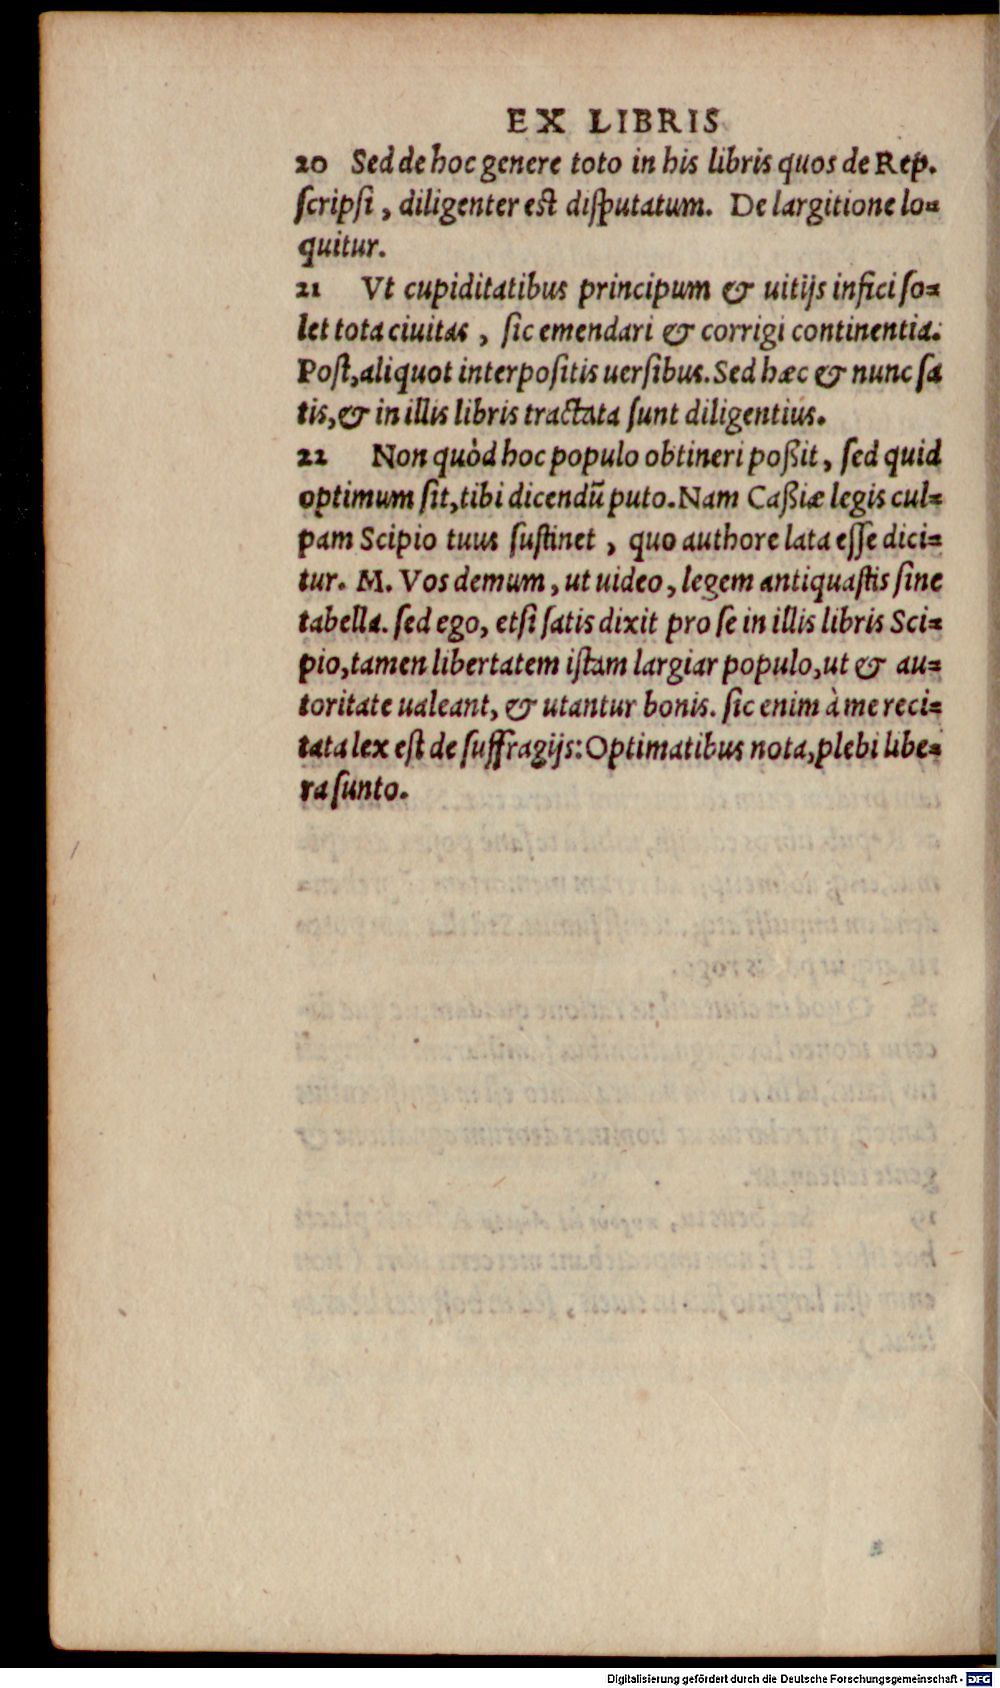 EX LIBRIS
20 Sed de hoc genere toto in his libris quos de Rep.
scripsi, diligenter est disputatum. De largitione lo=
quitur.
21 Vt cupiditatibus principum & uitijs infici so=
let tota ciuitas, sic emendari & corrigi continentia.
Post, aliquot interpositis uersibus. Sed hæc & nunc sa
tis, & in illis libris tractata sunt diligentius.
22 Non quòd hoc populo obtineri poßit, sed quid
optimum sit, tibi dicendū puto. Nam Caßiæ legis cul=
pam Scipio tuus sustinet, quo authore lata esse dici=
tur. M. Vos demum, ut uideo, legem antiquastis sine
tabella. sed ego, etsi satis dixit pro se in illis libris Sci=
pio, tamen libertatem istam largiar populo, ut & au=
toritate ualeant, & utantur bonis. sic enim à me reci=
tata lex est de suffragijs: Optimatibus nota, plebi libe=
ra sunto.
Digitalisierung gefördert durch die Deutsche Forschungsgemeinschaft - DFG